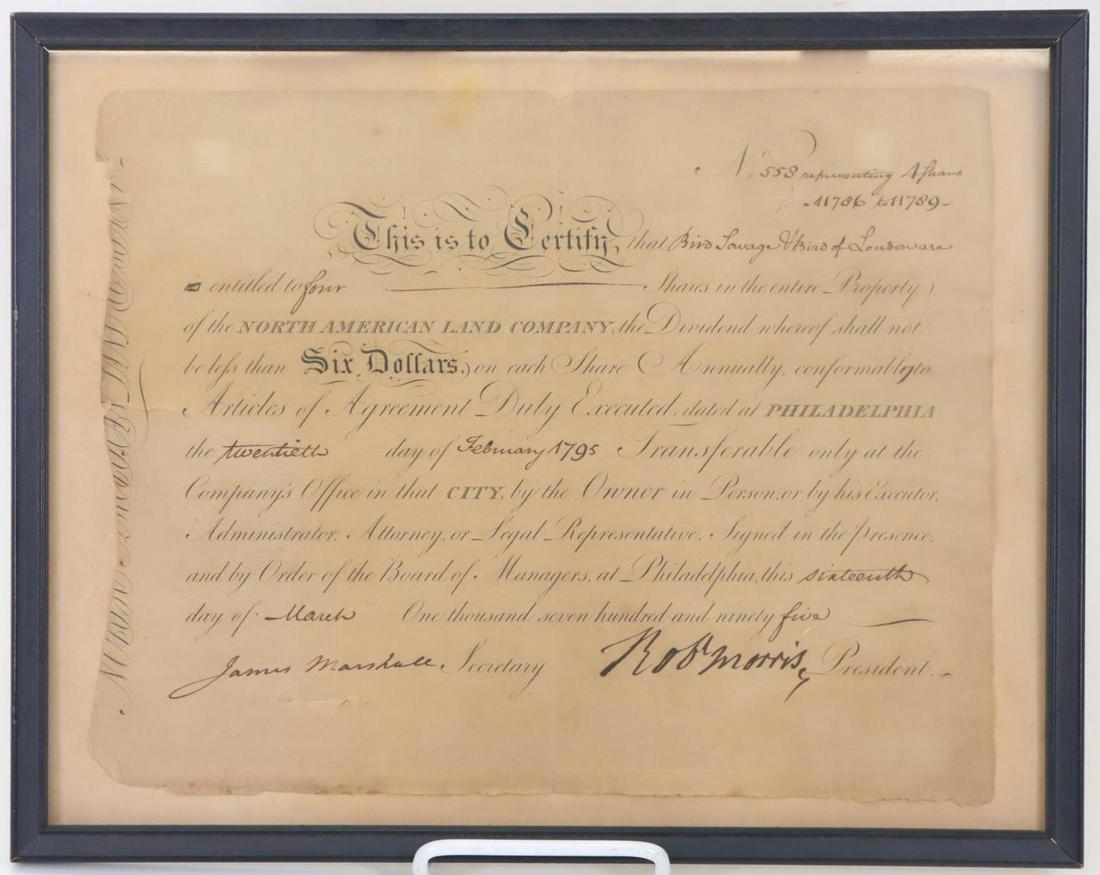 No. 558 representing 4 Shares
11786 to 11789
This is to Certify, that Bird Savage & Bird of London are
entitled to four Shares in the entire Property
of the NORTH AMERICAN LAND COMPANY, the Dividend whereof shall not
be less than Six Dollars, on each Share Annually, conformably to
Articles of Agreement Duly Executed, dated at PHILADELPHIA
the twentieth day of February 1795 Transferable only at the
Company's Office in that CITY, by the Owner in Person, or by his Executor,
Administrator, Attorney, or Legal Representative. Signed in the presence,
and by Order of the Board of Managers, at Philadelphia, this sixteenth
day of March One thousand seven hundred and ninety five
James Marshall, Secretary Robt Morris, President.